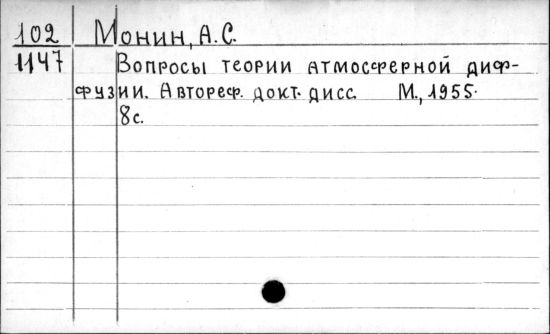 102 Монин, А.С.
1147 Вопросы теории атмосферной диф-
фузии. Автореф. докт. дисс. М., 1955.
8с.